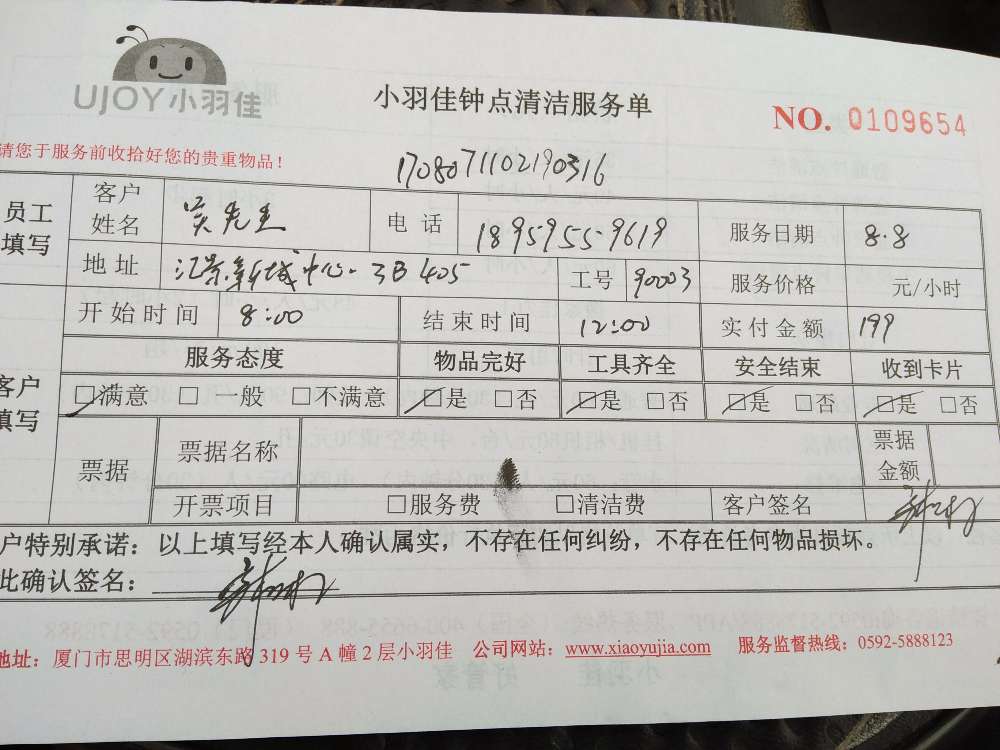 UJOY小羽佳
小羽佳钟点清洁服务单
NO. 0109654
请您于服务前收拾好您的贵重物品！
170807110219031​6
员工填写 客户姓名 吴先生 电话 18959559619 服务日期 8.8
地址 江景新城中心 3B 405 工号 90003 服务价格 元/小时
开始时间 8:00 结束时间 12:00 实付金额 199
客户填写 服务态度 物品完好 工具齐全 安全结束 收到卡片
□满意 □一般 □不满意 □是 □否 □是 □否 □是 □否 □是 □否
票据 票据名称 票据金额
开票项目 □服务费 □清洁费 客户签名
户特别承诺：以上填写经本人确认属实，不存在任何纠纷，不存在任何物品损坏。
此确认签名：
地址：厦门市思明区湖滨东路 319 号 A 幢 2 层小羽佳 公司网站：www.xiaoyujia.com 服务监督热线：0592-5888123